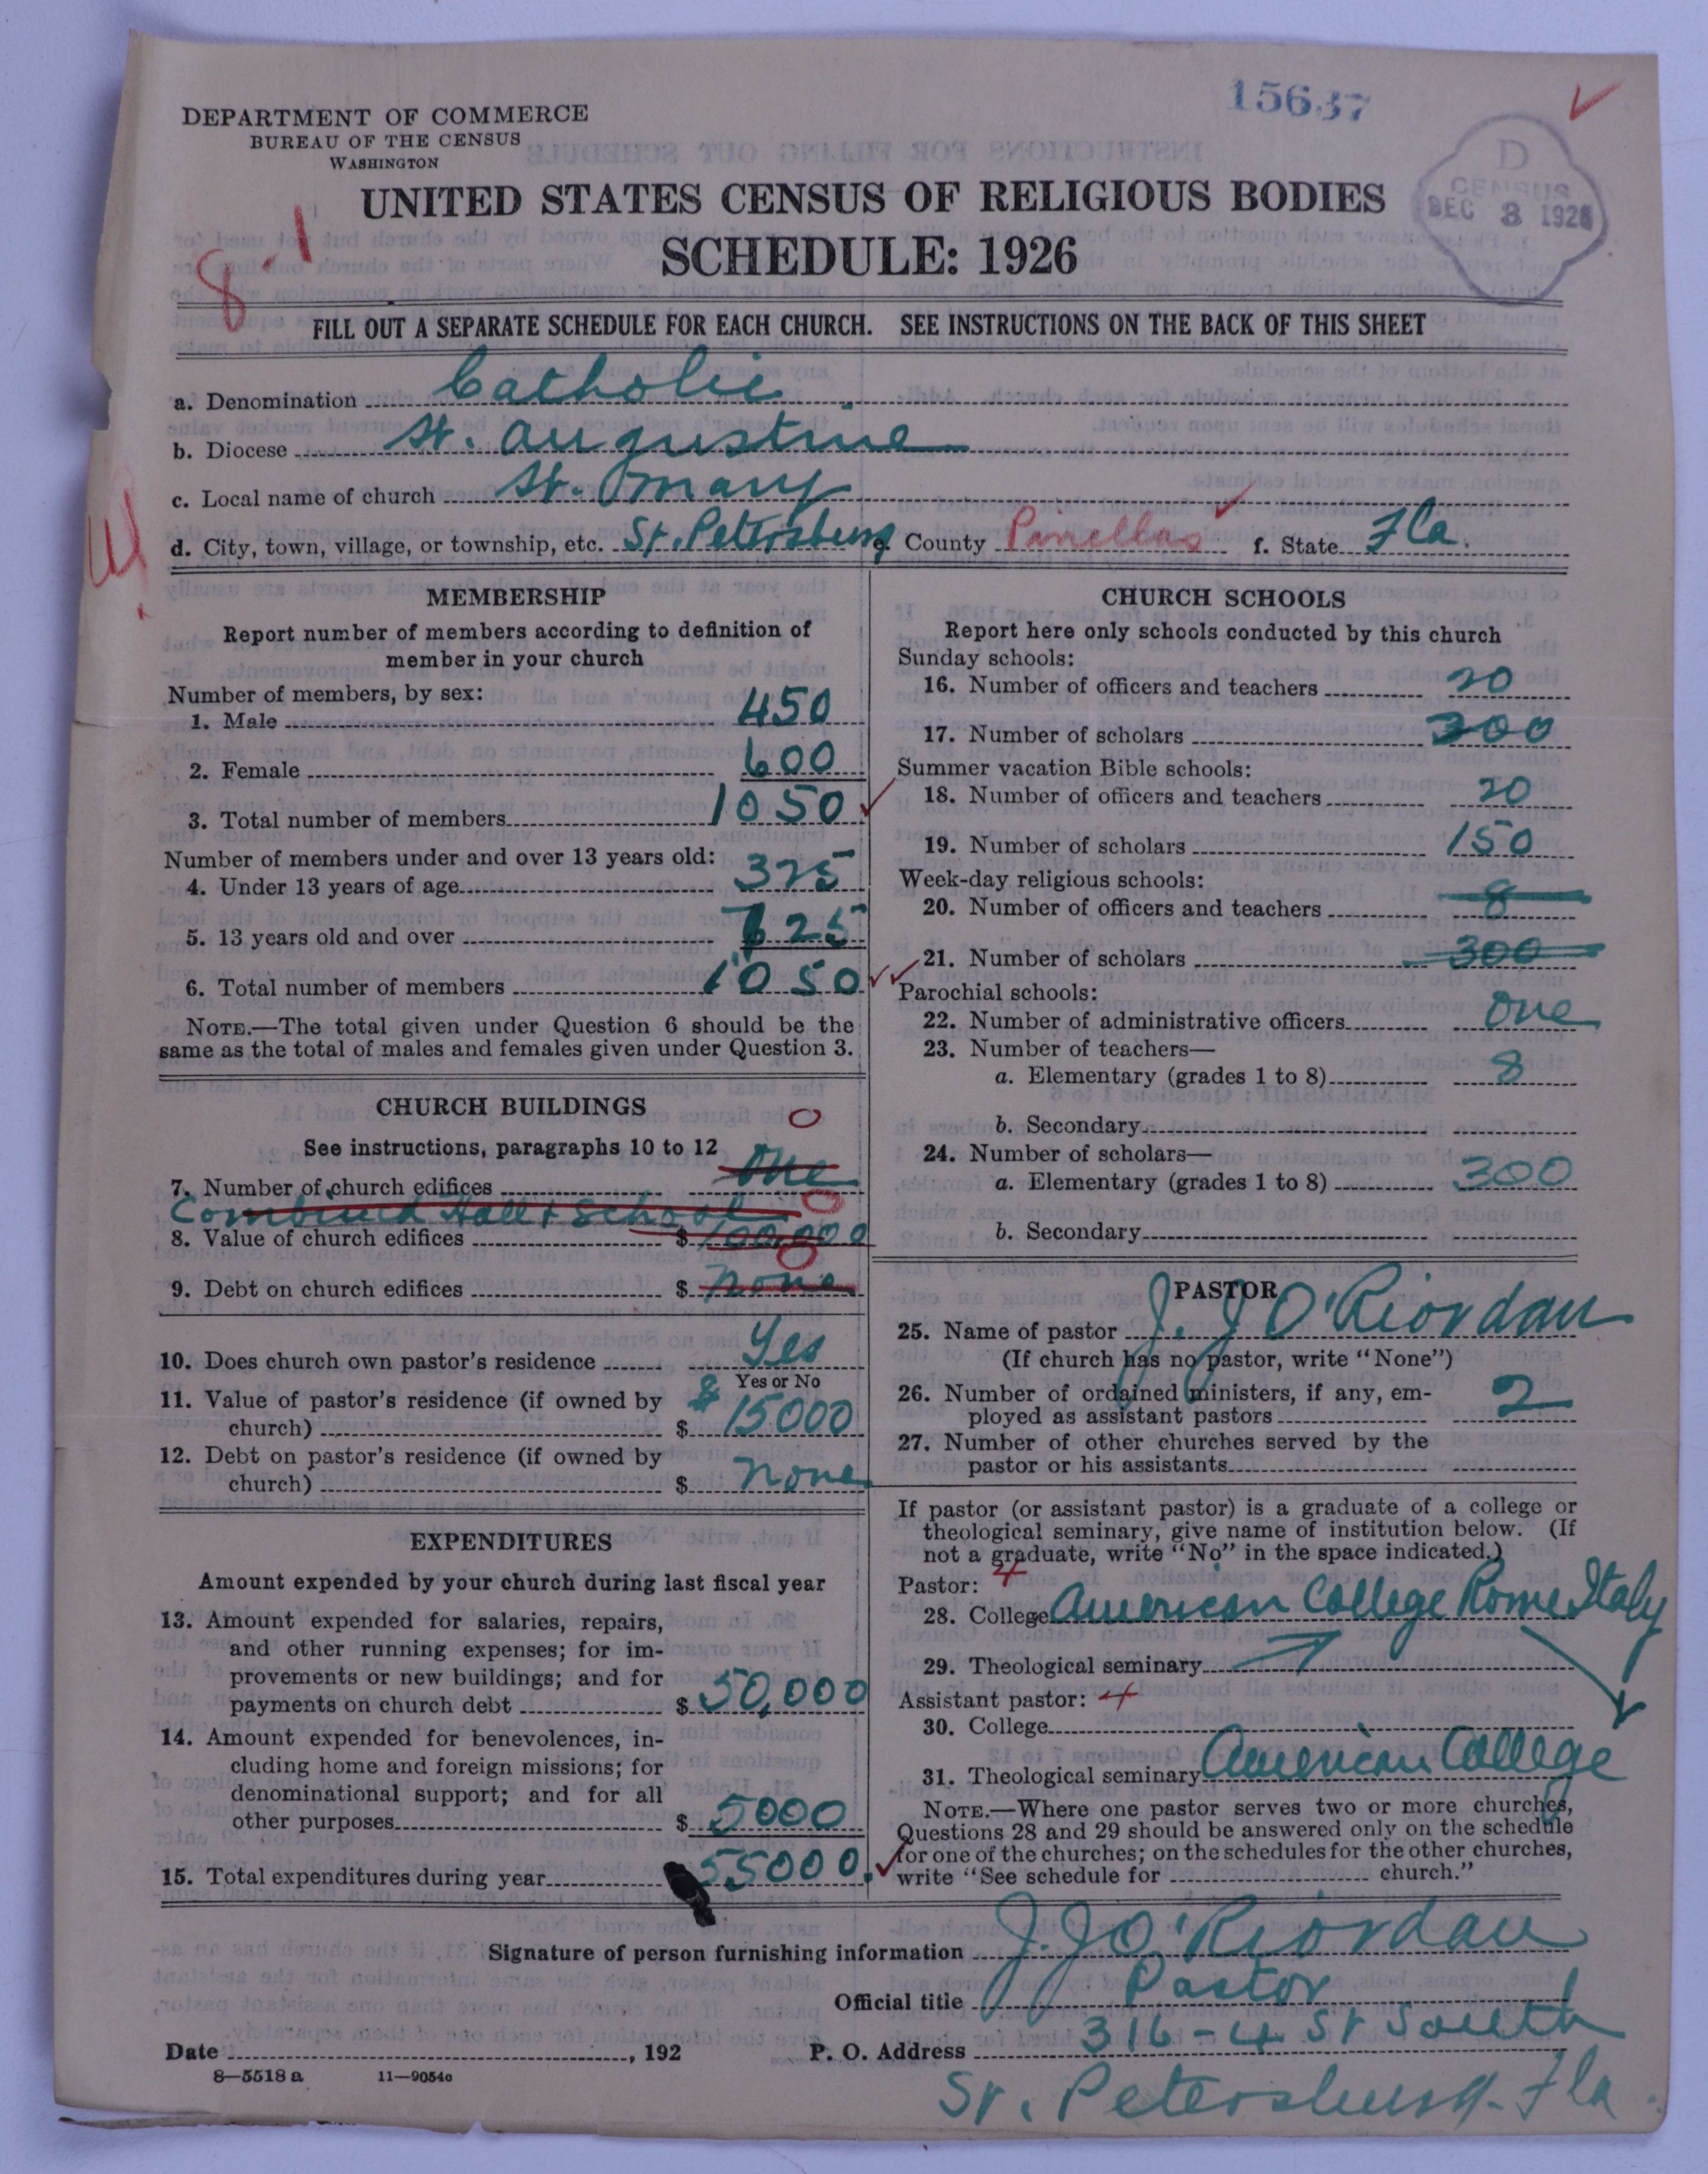 15637
DEPARTMENT OF COMMERCE
BUREAU OF THE CENSUS
WASHINGTON
D
CENSUS
DEC 3 1926
UNITED STATES CENSUS OF RELIGIOUS BODIES
SCHEDULE: 1926
8-1
FILL OUT A SEPARATE SCHEDULE FOR EACH CHURCH. SEE INSTRUCTIONS ON THE BACK OF THIS SHEET
a. Denomination Catholic
b. Diocese St. Augustine
c. Local name of church St. Mary
d. City, town, village, or township, etc. St. Petersburg e. County Pinellas f. State Fla.
MEMBERSHIP
Report number of members according to definition of
member in your church
Number of members, by sex:
1. Male 450
2. Female 600
3. Total number of members 1050
Number of members under and over 13 years old:
4. Under 13 years of age 325
5. 13 years old and over 725
6. Total number of members 1050
NOTE.—The total given under Question 6 should be the
same as the total of males and females given under Question 3.
CHURCH BUILDINGS
0
See instructions, paragraphs 10 to 12
7. Number of church edifices one
Combined Hall + School 0
8. Value of church edifices $ 100,000
0
9. Debt on church edifices $ none
10. Does church own pastor's residence Yes
Yes or No
11. Value of pastor's residence (if owned by
church) $ 15000
12. Debt on pastor's residence (if owned by
church) $ none
EXPENDITURES
Amount expended by your church during last fiscal year
13. Amount expended for salaries, repairs,
and other running expenses; for im-
provements or new buildings; and for
payments on church debt $ 50,000
14. Amount expended for benevolences, in-
cluding home and foreign missions; for
denominational support; and for all
other purposes $ 5000
15. Total expenditures during year 55000.
CHURCH SCHOOLS
Report here only schools conducted by this church
Sunday schools:
16. Number of officers and teachers 20
17. Number of scholars 300
Summer vacation Bible schools:
18. Number of officers and teachers 20
19. Number of scholars 150
Week-day religious schools:
20. Number of officers and teachers 8
21. Number of scholars 300
Parochial schools:
22. Number of administrative officers one
23. Number of teachers—
a. Elementary (grades 1 to 8) 8
b. Secondary
24. Number of scholars—
a. Elementary (grades 1 to 8) 300
b. Secondary
PASTOR
25. Name of pastor J. J O'Riordan
(If church has no pastor, write "None")
26. Number of ordained ministers, if any, em-
ployed as assistant pastors 2
27. Number of other churches served by the
pastor or his assistants
If pastor (or assistant pastor) is a graduate of a college or
theological seminary, give name of institution below. (If
not a graduate, write "No" in the space indicated.)
Pastor: 4
28. College American College Rome Italy
29. Theological seminary
Assistant pastor: 4
30. College
31. Theological seminary American College
NOTE.—Where one pastor serves two or more churches,
Questions 28 and 29 should be answered only on the schedule
for one of the churches; on the schedules for the other churches,
write "See schedule for church."
Signature of person furnishing information J. J O'Riordan
Official title Pastor
Date , 192 P. O. Address 316-4 St South
8—5518 a 11—9054a
St. Petersburg. Fla.